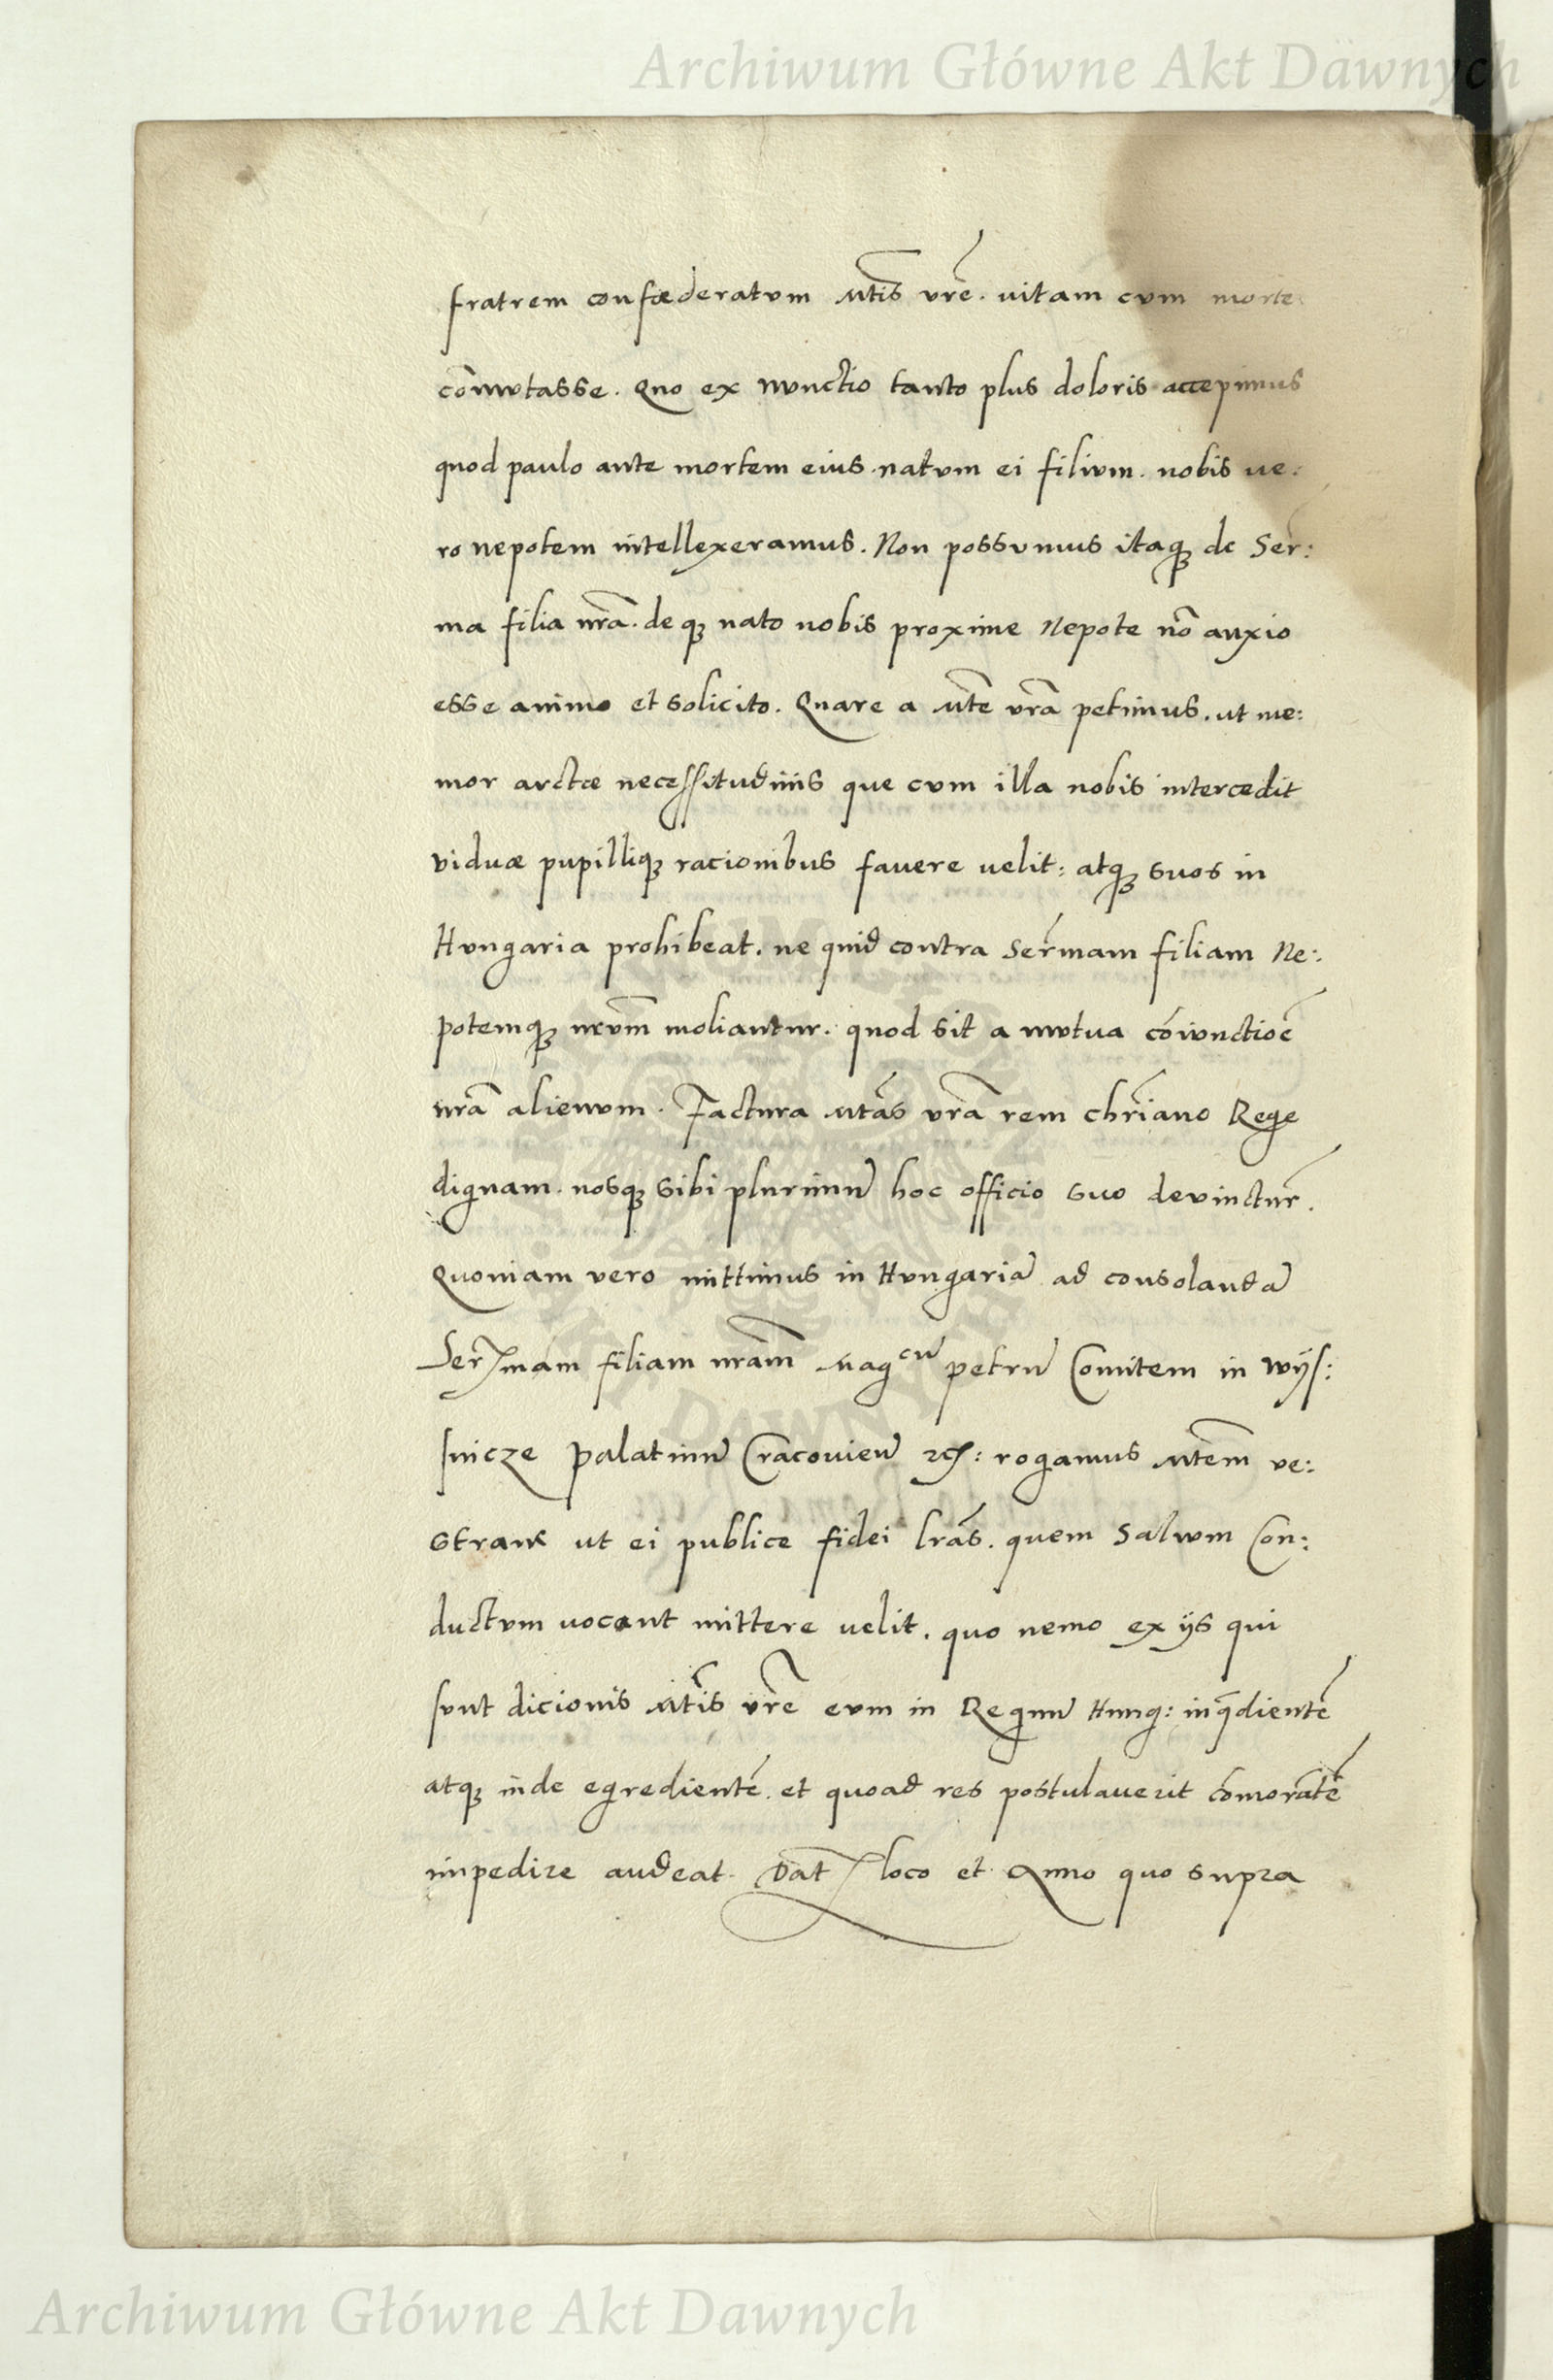 Archiwum Główne Akt Dawnych
fratrem confœderatum Mtis vrẽ. uitam cum morte
com̃utasse. Quo ex nunctio tanto plus doloris accepimus
quod paulo ante mortem eius natum ei filium. nobis ue:
ro nepotem intellexeramus. Non possumus itaqȝ de Ser:
ma filia nrã. deqȝ nato nobis proxime Nepote nõ anxio
esse animo et solicito. Quare a Mte vrã petimus. ut me:
mor arctæ necessitudinis que cum illa nobis intercedit
viduæ pupilliqȝ racionibus fauere uelit: atqȝ suos in
Hungaria prohibeat. ne quid contra Serm̃am filiam Ne:
potemqȝ nrũm moliantur. quod sit a mutua cõiunctioẽ
nrã alienum. Factura Mtãs vrã rem chrĩano Rege
dignam. nosqȝ sibi plurimũ hoc officio suo devinctur̃.
Quoniam vero mittimus in Hungariã ad consolandã
Sermam filiam nrãm Magcũ petrũ Comitem in Wijs:
nicze Palatinũ Cracovieñ ꝛcꝭ: rogamus Mtem̃ ve:
stram ut ei publice fidei lrãs. quem Salvum Con:
ductum uocant mittere uelit. quo nemo ex ijs qui
sunt dicionis Mtĩs vrẽ eum in Regnũ Hung: ingᷓdientẽ
atqȝ inde egredientẽ. et quoad res postulauerit cõmorãtẽ
impedire audeat. Dat̃ loco et Anno quo supra
Archiwum Główne Akt Dawnych